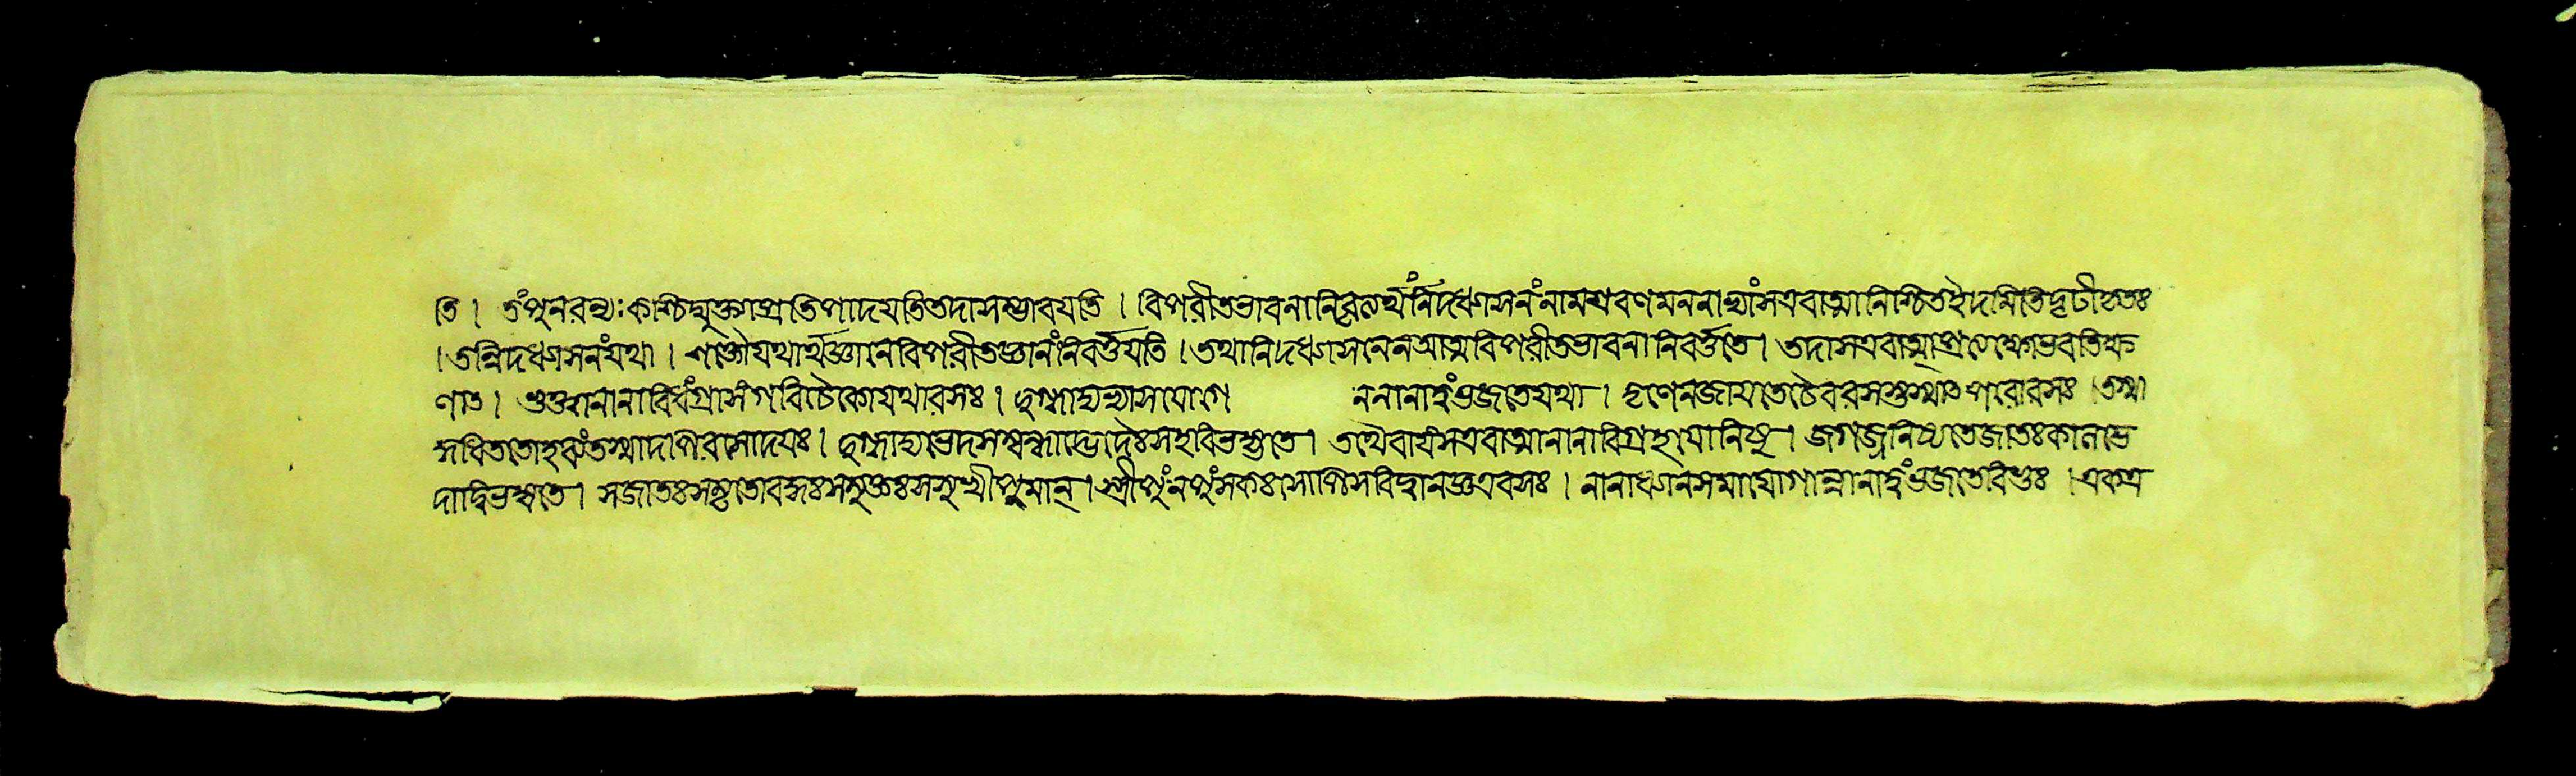 তি। তংপুনরন্যঃকশ্চিদ্মুক্ত্যাপ্রতিপাদযতিতদাসম্ভাবযতি। বিপরীতভাবনানিবৃত্ত্যর্থংনিদিধ্যাসনংনামশ্রবণমননাভ্যাংসএবাত্মানিশ্চিতইদমিতিদৃঢীকৃতঃ
।তন্নিদধ্যাসনংযথা। শুক্তৌযথার্থজ্ঞানেবিপরীতজ্ঞানংনিবর্ত্তযতি।তথানিদধ্যাসনেনআত্মবিপরীতভাবনানিবর্ত্ততে। তদাসএবাত্মাপ্রত্যক্ষোভবতিক্ষ
ণাৎ। ভুক্তানানাবিধংগ্রাসংগবিচৈকোযথারসঃ। দুগ্ধাদ্যভ্যাসযোগে নানানাত্বংব্রজতেযথা। তৃণেনজাযতেচৈবরসস্তস্মাৎপযোরসঃ।তস্মা
দধিততোহবংতস্মাদাপরসোদযঃ। দুগ্ধাদ্যভেদসম্বন্ধাদ্ভেদৈঃসহবিভজ্যতে। তথৈবাযংসএবাত্মানানাবিগ্রহযোনিষু। জগজ্জনিষ্যতেজাতঃকালভে
দাদ্বিভজ্যতে। সজাতঃসমৃতোবদ্ধঃসমুক্তঃসসুখীপুমান্।স্ত্রীপুংনপুংসকঃসোপিসবিদ্বানজ্ঞএবসঃ। নানাধ্যানসমাযোগান্নানাত্বংব্রজতেবিভুঃ।একত্র